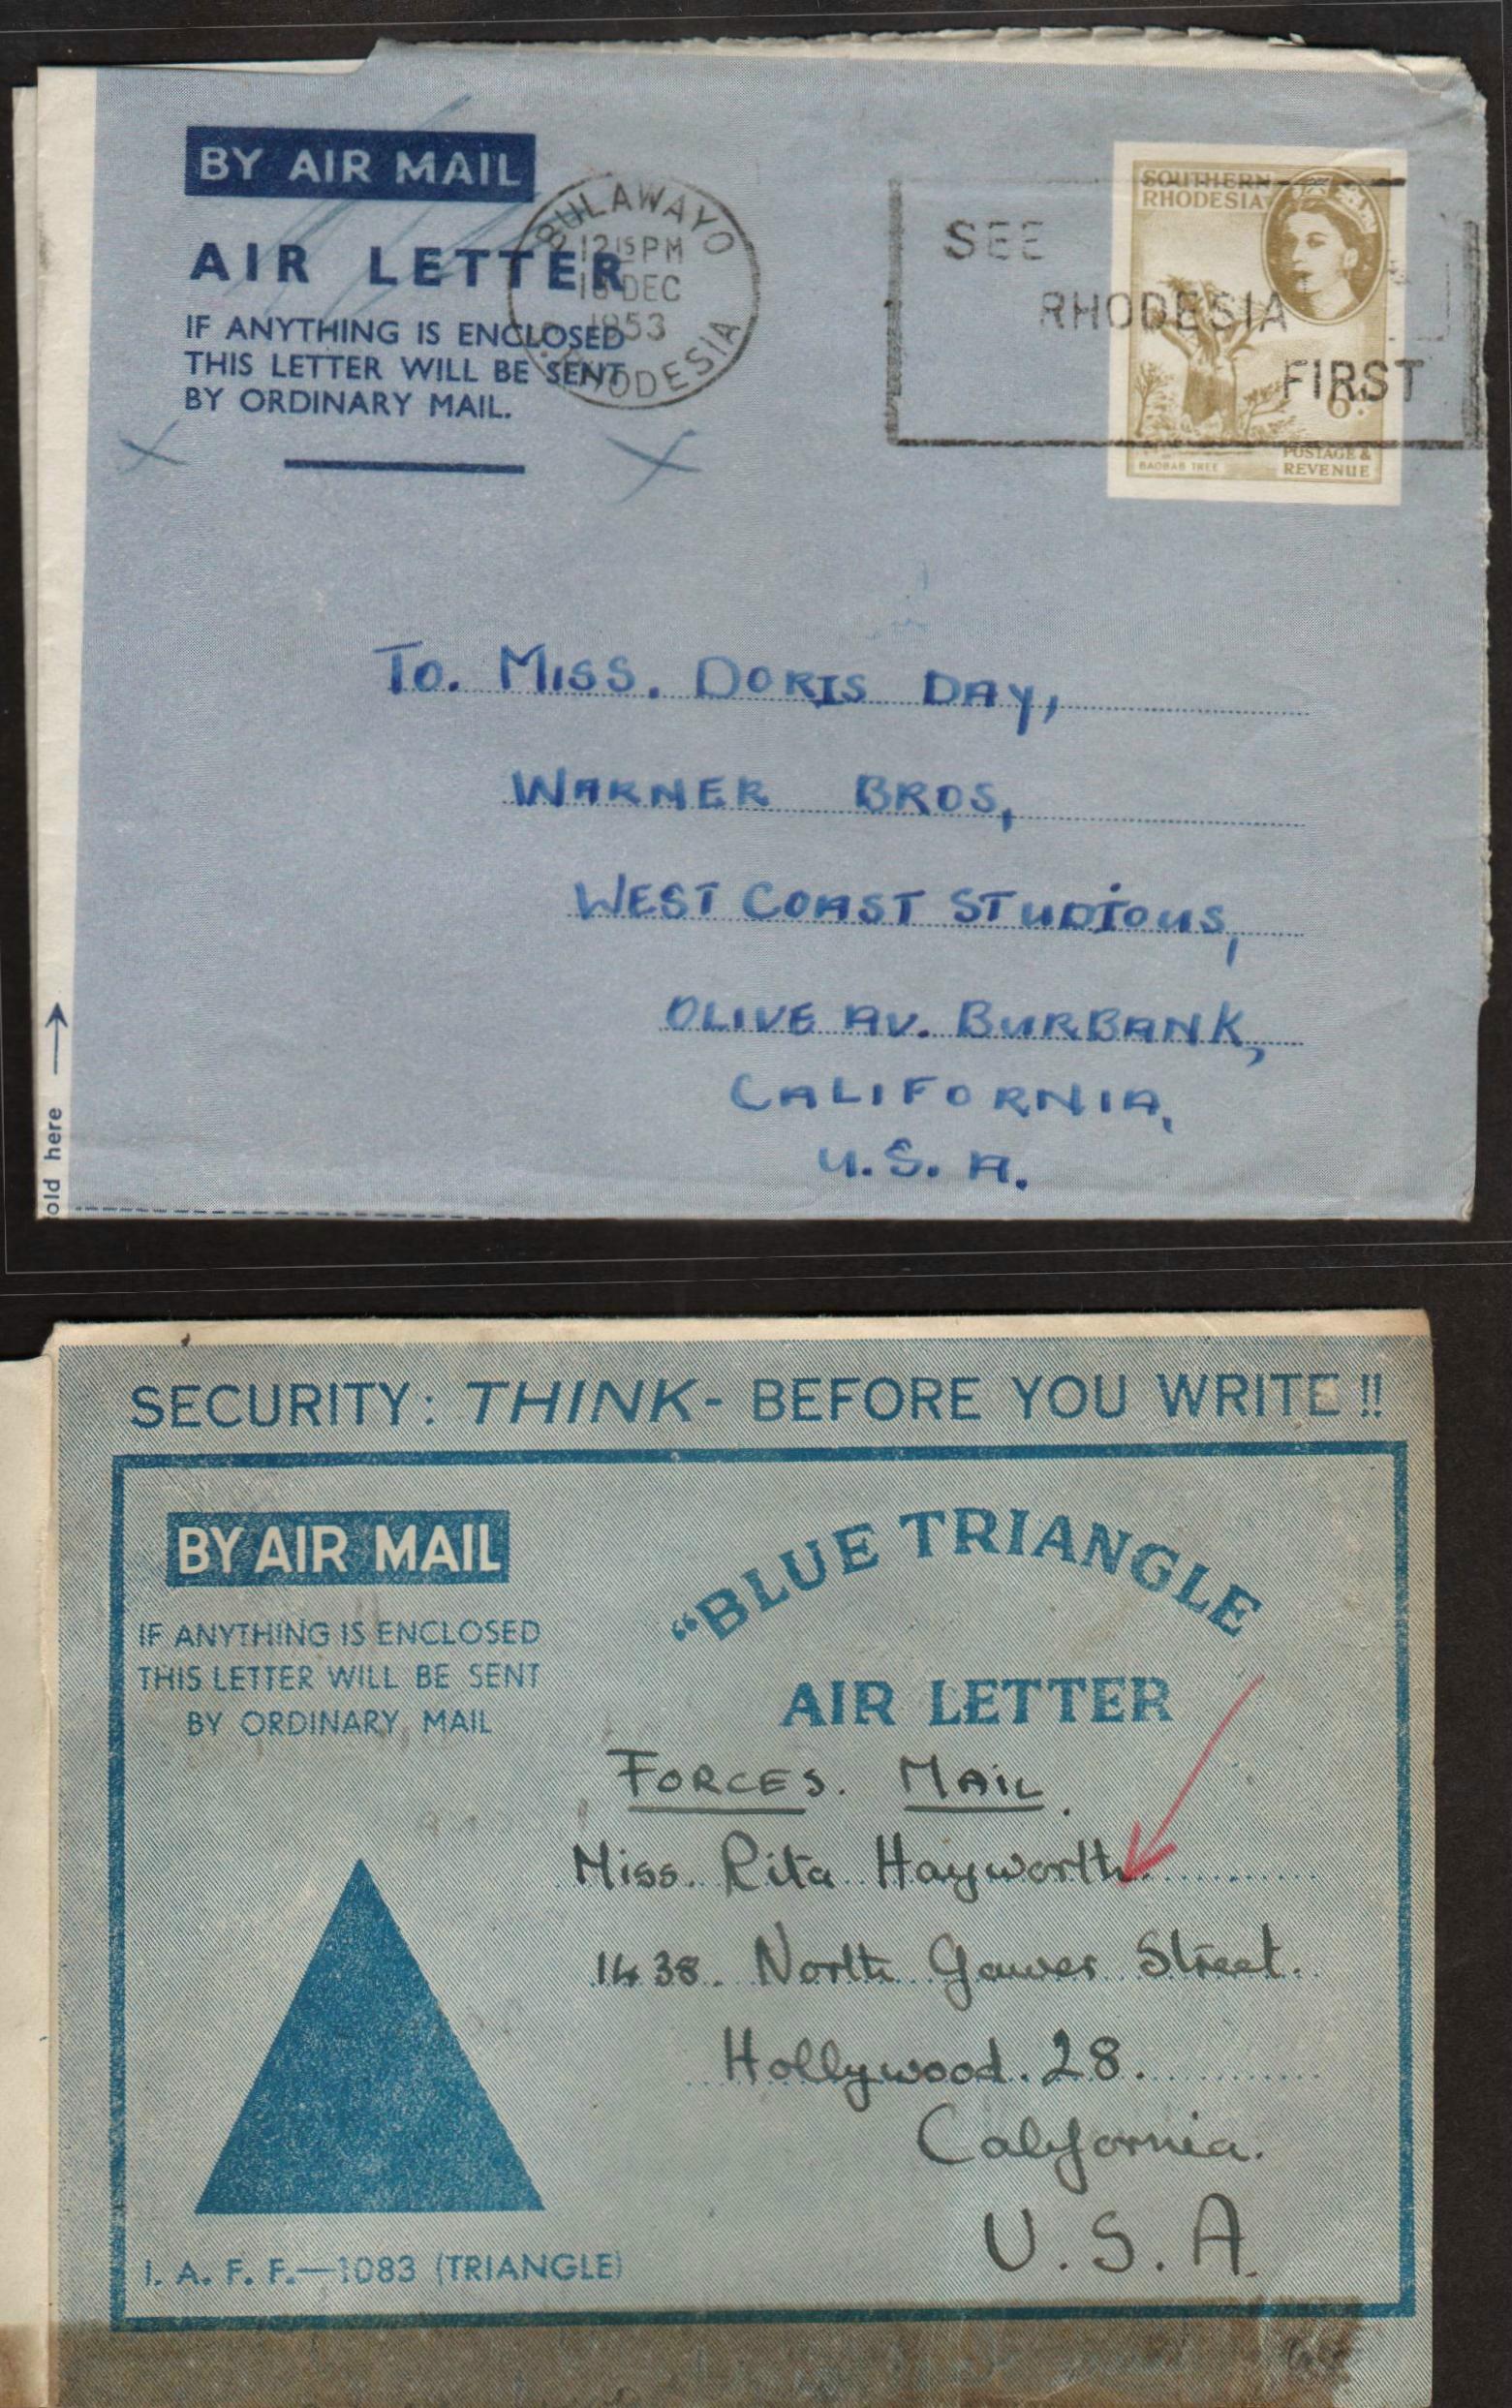 BY AIR MAIL
AIR LETTER
IF ANYTHING IS ENCLOSED
THIS LETTER WILL BE SENT
BY ORDINARY MAIL.
BULAWAYO
12 15 PM
DEC
1953
RHODESIA
SEE
RHODESIA
FIRST
SOUTHERN
RHODESIA
6D.
BAOBAB TREE
POSTAGE &
REVENUE
To. MISS. DORIS DAY,
WARNER BROS,
WEST COAST STUDIOUS,
OLIVE AV. BURBANK,
CALIFORNIA,
U.S.A.
old here
SECURITY: THINK - BEFORE YOU WRITE !!
BY AIR MAIL
IF ANYTHING IS ENCLOSED
THIS LETTER WILL BE SENT
BY ORDINARY MAIL
"BLUE TRIANGLE
AIR LETTER
FORCES. MAIL.
Miss. Rita Hayworth
1438. North Gower Street.
Hollywood. 28.
California.
U.S.A.
I. A. F. F.—1083 (TRIANGLE)